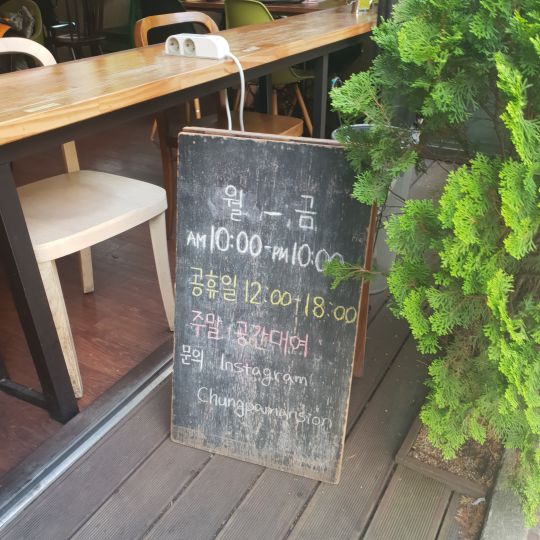 월 - 금
AM 10:00-PM 10:00
공휴일 12:00-18:00
주말 공간대여
문의 Instagram
Chungpamansion